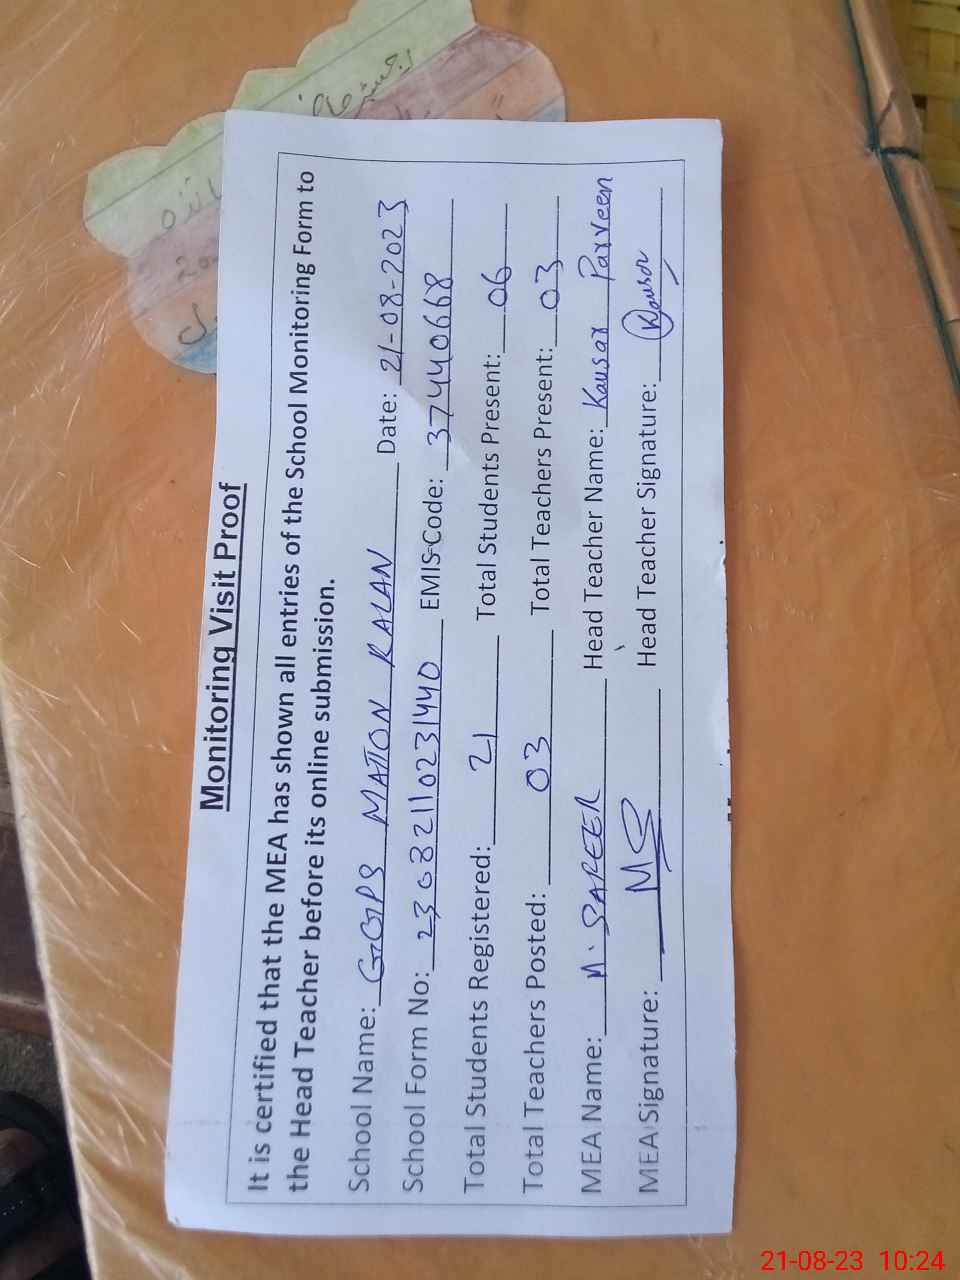 Monitoring Visit Proof
It is certified that the MEA has shown all entries of the School Monitoring Form to
the Head Teacher before its online submission.
School Name: GGPS MATTON KALAN Date: 21-08-2023
School Form No: 23082110231440 EMIS Code: 37440668
Total Students Registered: 21 Total Students Present: 06
Total Teachers Posted: 03 Total Teachers Present: 03
MEA Name: M. SAFEER Head Teacher Name: Kausar Parveen
MEA Signature: MS Head Teacher Signature: Kausar
21-08-23 10:24